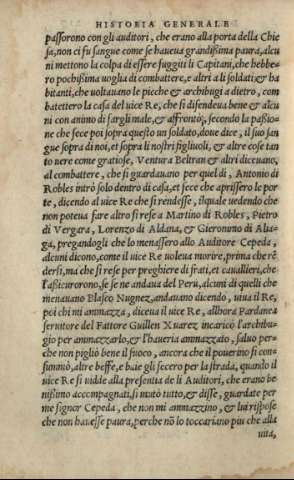 HISTORIA GENERALE
passorono con gli auditori, che erano alla porta della Chie
sa, non ci fu sangue come se haueua grandissima paura, alcu
ni mettono la colpa di essere fuggiti li Capitani, che hebbe-
ro pochissima uoglia di combattere, e altri a li soldati, & ha
bitanti, che uoltauano le pieche & archibugi a dietro, com
battettero la casa del uice Re, che si difendeua bene & alcu
ni con animo di fargli male, & affronto; secondo la passio-
ne che fece poi sopra questo un soldato, doue dice, il suo san-
gue sopra di noi, et sopra li nostri figliuoli, & altre cose tan
to uere come gratiose, Ventura Beltran & altri diceuano,
al combattere, che si guardauano per quel dì, Antonio di
Robles intrò solo dentro di casa, et fece che aprissero le por
te, dicendo al uice Re che si rendesse, ilquale uedendo che
non poteua fare altro si rese a Martino di Robles, Pietro
di Vergara, Lorenzo di Aldana, & Gieronimo di Alia-
ga, pregandogli che lo menassero allo Auditore Cepeda,
alcuni dicono, come il uice Re uoleua morire, prima che rē
dersi, ma che si rese per preghiere di frati, et cauallieri, che
l'assicurorono, se se ne andaua del Peru, alcuni di quelli che
menauano Blasco Nugnez, andauano dicendo, uiua il Re,
poi chi mi ammazza, diceua il uice Re, allhora Pardaue
seruitore del Fattore Guillen Xuarez incaricò l'archibu-
gio per ammazzarlo, & l'haueria ammazzato, saluo per-
che non pigliò bene il fuoco, ancora che il pouerino si con-
sumauò, altre beffe, e baie gli fecero per la strada, quando il
uice Re si uidde alla presentia de li Auditori, che erano be
nissimo accompagnati, si mutò tutto, & disse, guardate per
me signor Cepeda, che non mi ammazzino, & lui rispose
che non hauesse paura, perche nō lo toccariano piu che alla
uita,